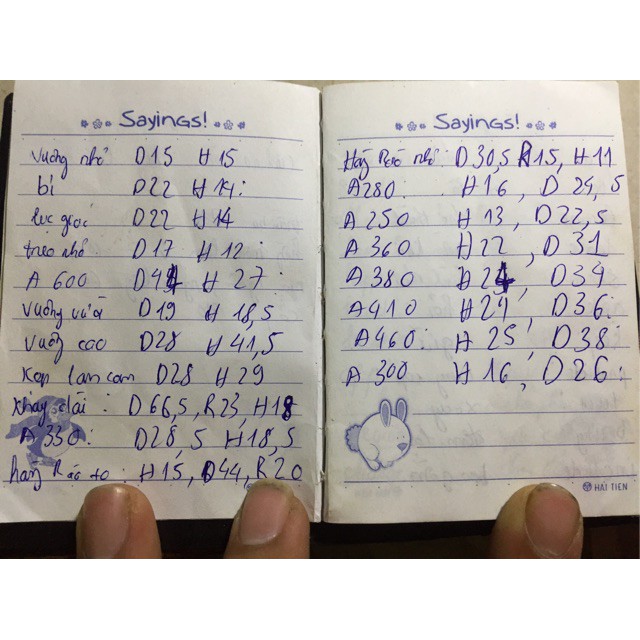 Sayings!
Vuông nhỏ D15 H15
bí D22 H14
lục giác D22 H14
treo nhỏ D17 H12
A 600 D44 H 27
Vuông vừa D19 H 18,5
Vuông cao D28 H41,5
Kẹp lam com D28 H29
Khay dài : D66,5, R23, H18
A 330 : D28,5 H18,5
to : H15, D44, R20
Sayings!
nhỏ : D30,5 R15, H11
A280 H16, D 24,5
A 250 H 13, D22,5
A 360 H22, D31
A 380 H24, D34
A410 H24, D36
A460 : H 25, D38
A 300 H 16, D26
HẢI TIẾN